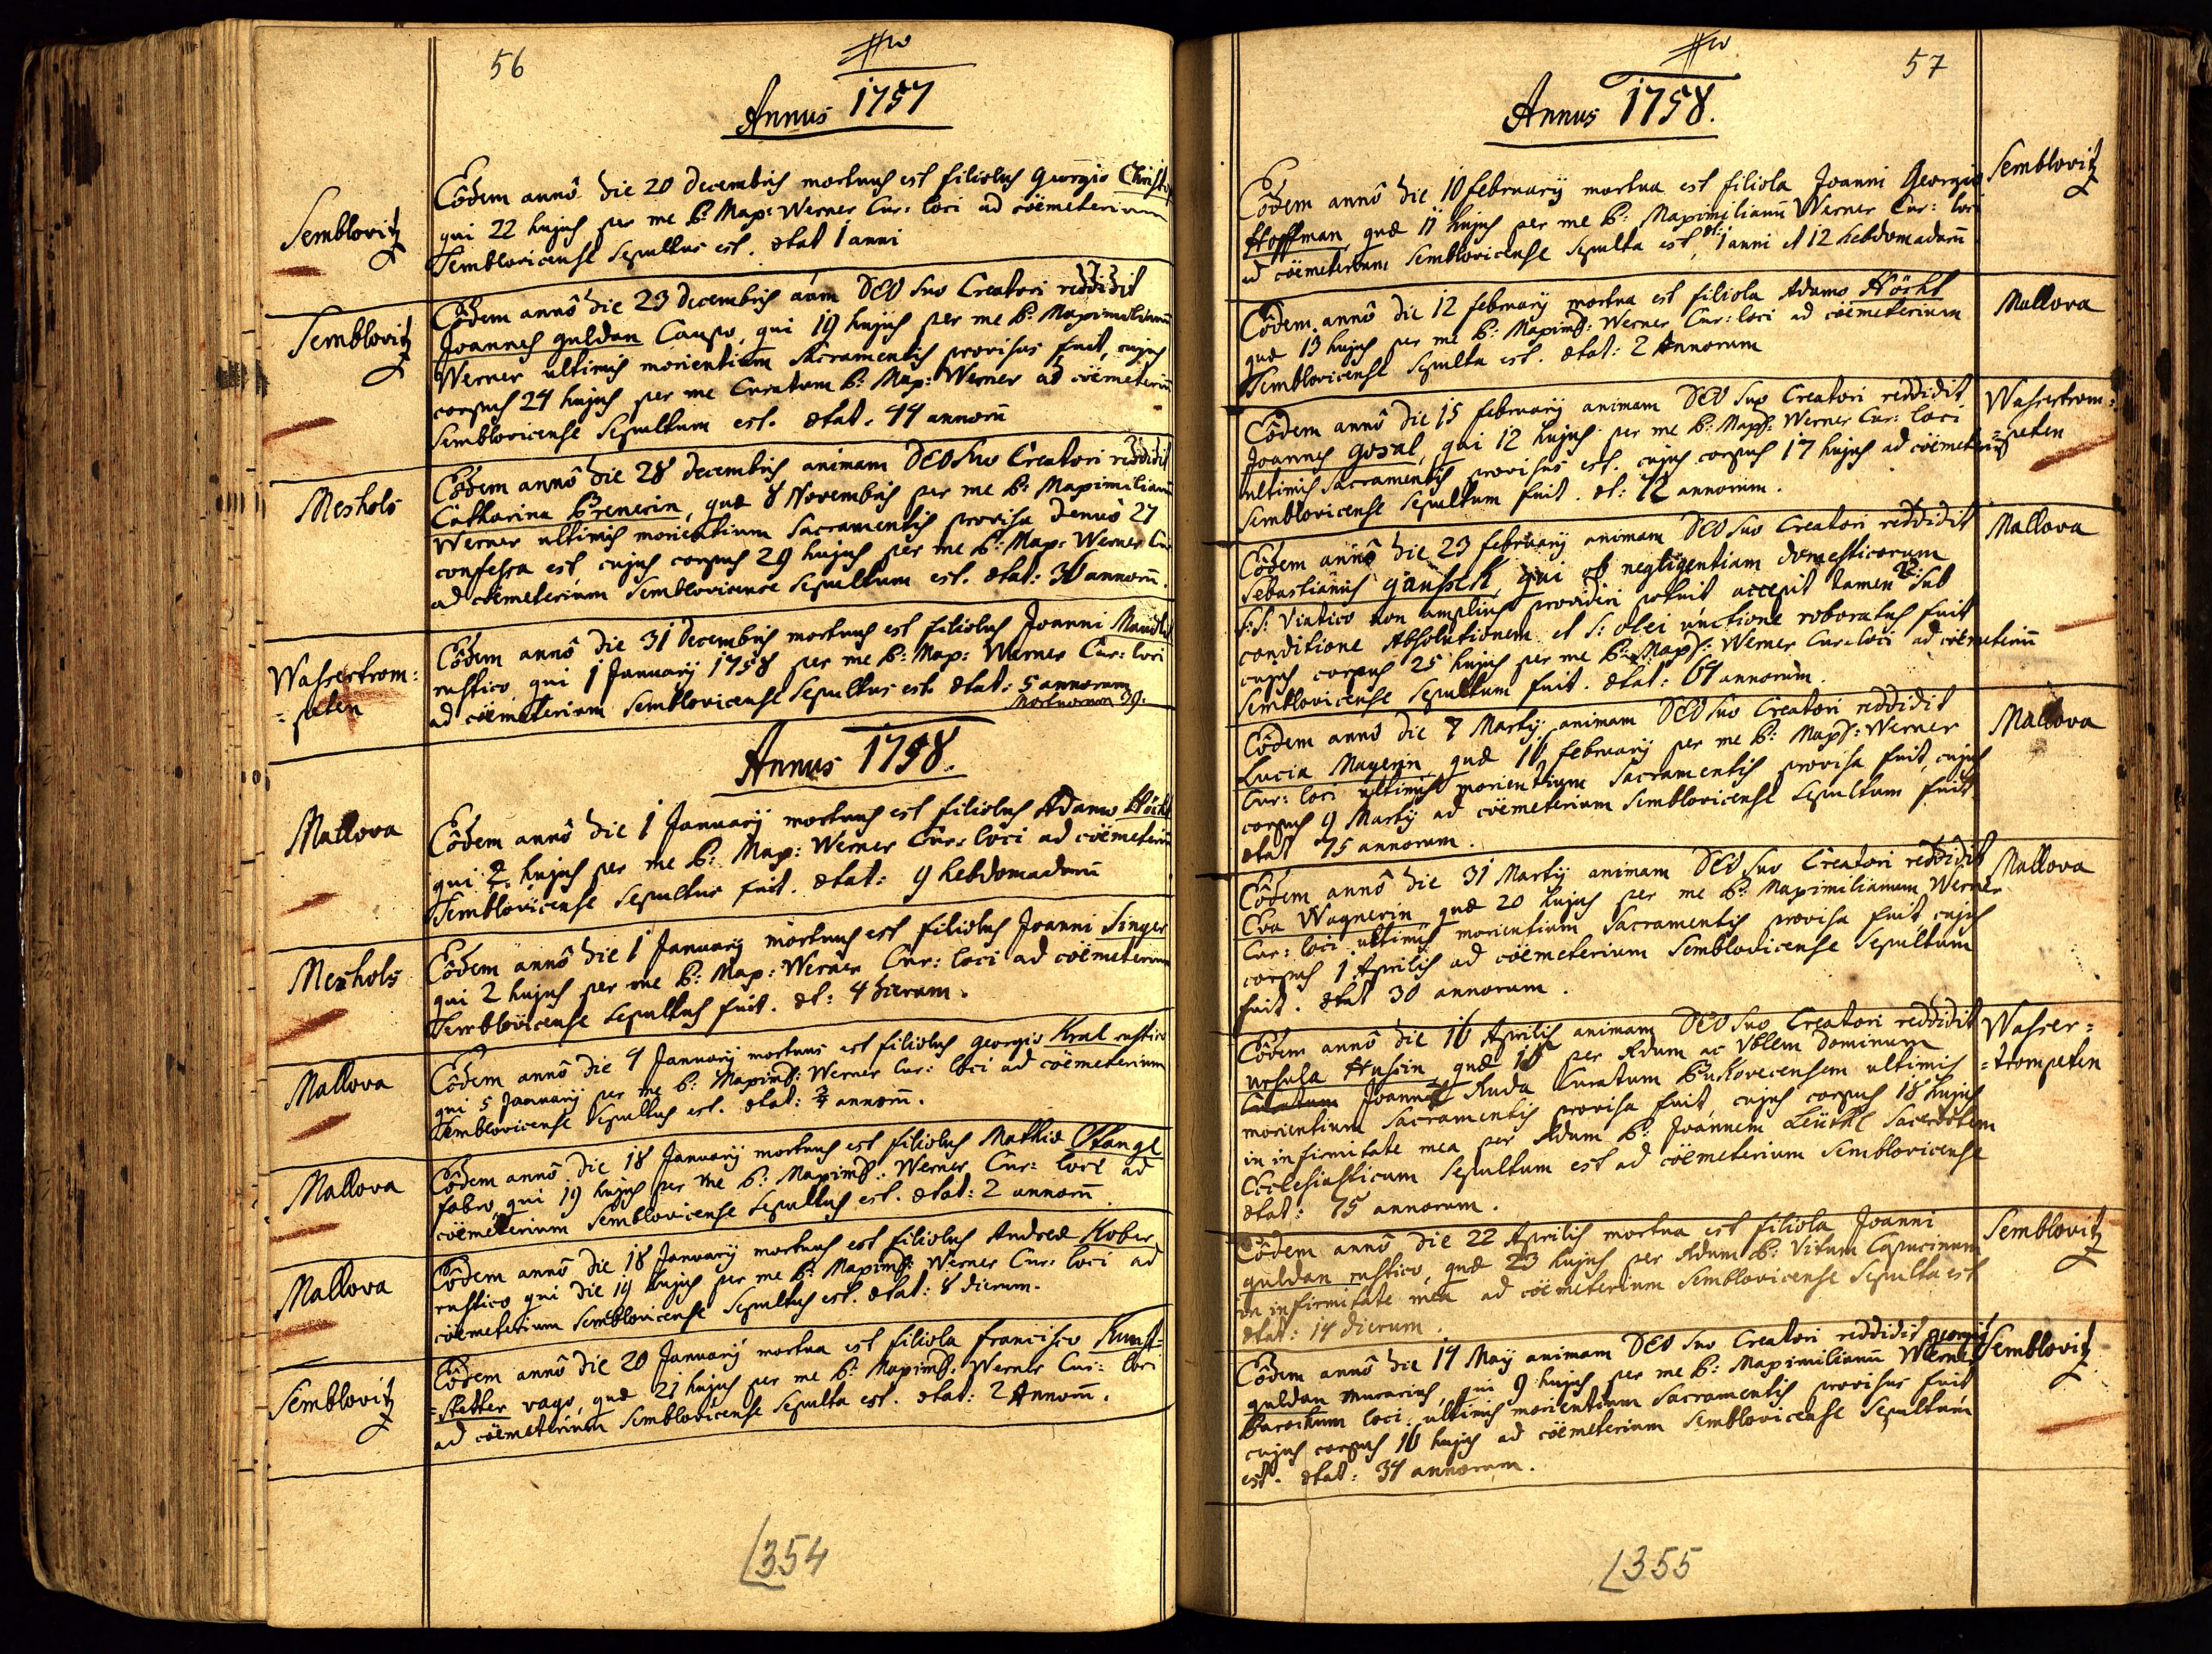 56
Annus 1757
Semblovitz
Eôdem annô die 20 decembris mortuus est filiolus Georgio Christ
qui 22 hujus per me P: Max: Werner Cur: loci ad cöemeterium
Semblovicense sepultus est. ætat 1 anni
Semblovitz
Eôdem annô die 23 decembris aãm DEO suo Creatori reddidit
Joannes guldan Caupo, qui 19 hujus per me P: Maximilianũ
Werner ultimis morientium Sacramentis provisus fuit, cujus
corpus 24 hujus per me Curatum P: Max: Werner ad cöemeteriũ
Semblovicense Sepultum est. ætat. 44 annorũ
Meshols
Eôdem annô die 28 decembris animam DEO suo Creatori reddidit
Catharina Prenerin, quæ 8 Novembris per me P: Maximilianũ
Werner ultimis morientium Sacramentis provisa denuô 27
confessa est cujus corpus 29 hujus per me P: Max: Werner Cur
ad cöemeterium Semblovicense sepultum est. ætat: 36 annorũ.
Wassertrom=
=peten
Eôdem annô die 31 decembris mortuus est filiolus Joanni
rustico qui 1 January 1758 per me P: Max: Werner Cur: loci
ad cöemeterium Semblovicense Sepultus est. ætat: 5 annorum
Mortuorum 39.
Annus 1758.
Mallova
Eôdem annô die 1 January mortuus est filiolus Adamo Höchl
qui 2. hujus per me P: Max: Werner Cur: loci ad cöemeteriũ
Semblovicense Sepultus fuit. ætat: 9 hebdomadarũ
Meshols
Eôdem annô die 1 January mortuus est filiolus Joanni Singer
qui 2 hujus per me P: Max: Werner Cur: loci ad cöemeterium
Semblovicense sepultus fuit. æt: 4 dierum.
Mallova
Eôdem annô die 4 January mortuus est filiolus georgio Kral rustico
qui 5 January per me P: Maximil: Werner Cur: loci ad cöemeterium
Semblovicense Sepultus est. ætat: annorũ.
Mallova
Eôdem annô die 18 January mortuus est filiolus Mathiæ Stangl
fabro, qui 19 hujus per me P: Maximil: Werner Cur: loci ad
cöemeterium Semblovicense sepultus est. ætat: 2 annorũ.
Mallova
Eôdem annô die 18 January mortuus est filiolus Andreæ Kober
rustico qui die 19 hujus per me P: Maximil: Werner Cur: loci ad
cöemeterium Semblovicense Sepultus est. ætat: 8 dierum.
Semblovitz
Eôdem annô die 20 January mortua est filiola francisco Kunst=
=statter vago, quæ 21 hujus per me P: Maximil: Werner Cur: loci
ad cöemeterium Semblovicense Sepulta est. ætat: 2 Annorũ.
354
57
Annus 1758.
Eôdem annô die 10 february mortua est filiola Joanni Georgio
Semblovitz
Hoffman, quæ 11 hujus per me P: Maximilianũ Werner Cur: loci
ad cöemeterium Semblovicense Sepulta est, æt: 1 anni et 12 hebdomadarũ
Eôdem annô die 12 february mortua est filiola Adamo Höchl
Mallova
quæ 13 hujus per me P: Maximil: Werner Cur: loci ad cöemeterium
Semblovicense Sepulta est. ætat: 2 Annorum
Eôdem annô die 15 february animam DEO suo Creatori reddidit
Wassertrom=
=peten
Joannes gosal, qui 12 hujus per me P: Maxil: Werner Cur: loci
ultimis Sacramentis provisus est. cujus corpus 17 hujus ad cöemeteriũ
Semblovicense sepultum fuit. æt: 72 annorum.
Eôdem annô die 23 february animam DEO suo Creatori reddidit
Mallova
Sebastianus gänsserl, qui ob negligentiam domesticorum
S:S: Viatico non amplius provideri potuit accepit tamen 22: sub
conditione Absolutionem et S: olei unctione roboratus fuit
cujus corpus 25 hujus per me P: Maxil: Werner Cur: loci ad cöemeteriũ
Semblovicense Sepultum fuit. ætat: 64 annorum.
Eôdem annô die 7 Marty animam DEO suo Creatori reddidit
Mallova
Lucia Mayerin quæ 16 february per me P: Maxil: Werner
Cur: loci ultimis morientium Sacramentis provisa fuit, cujus
corpus 9 Marty ad cöemeterium Semblovicense sepultum fuit
ætat 75 annorum.
Eôdem annô die 31 Marty animam DEO suo Creatori reddidit
Mallova
Eva Wagnerin quæ 20 hujus per me P: Maximilianum Werner
Cur: loci ultimis morientium Sacramentis provisa fuit, cujus
corpus 1 Aprilis ad cöemeterium Semblovicense Sepultum
fuit. ætat 30 annorum.
Eôdem annô die 16 Aprilis animam DEO suo Creatori reddidit
Wasser=
=trompeten
Ursula Husin, quæ per Adum ac Vblem Dominum
Curatum Joannẽ Ruda Curatum Puskovecensem ultimis
morientium Sacramentis provisa fuit, cujus corpus 18 hujus
in infirmitate mea per Adum P: Joannem Leüthl Sacerdotem
Ecclesiasticum sepultum est ad cöemeterium Semblovicense
ætat: 75 annorum.
Eôdem annô die 22 Aprilis mortua est filiola Joanni
Semblovitz
guldan rustico, quæ 23 hujus per Adum P: Vitum Capucinum
in infirmitate mea ad cöemeterium Semblovicense Sepulta est
ætat: 14 dierum.
Eôdem annô die 14 May animam DEO suo Creatori reddidit georgius
Semblovitz
guldan murarius, qui 9 hujus per me P: Maximilianũ Werner
Parochum loci ultimis morientium Sacramentis provisus fuit
cujus corpus 16 hujus ad cöemeterium Semblovicense Sepultum
est. ætat: 34 annorum.
355